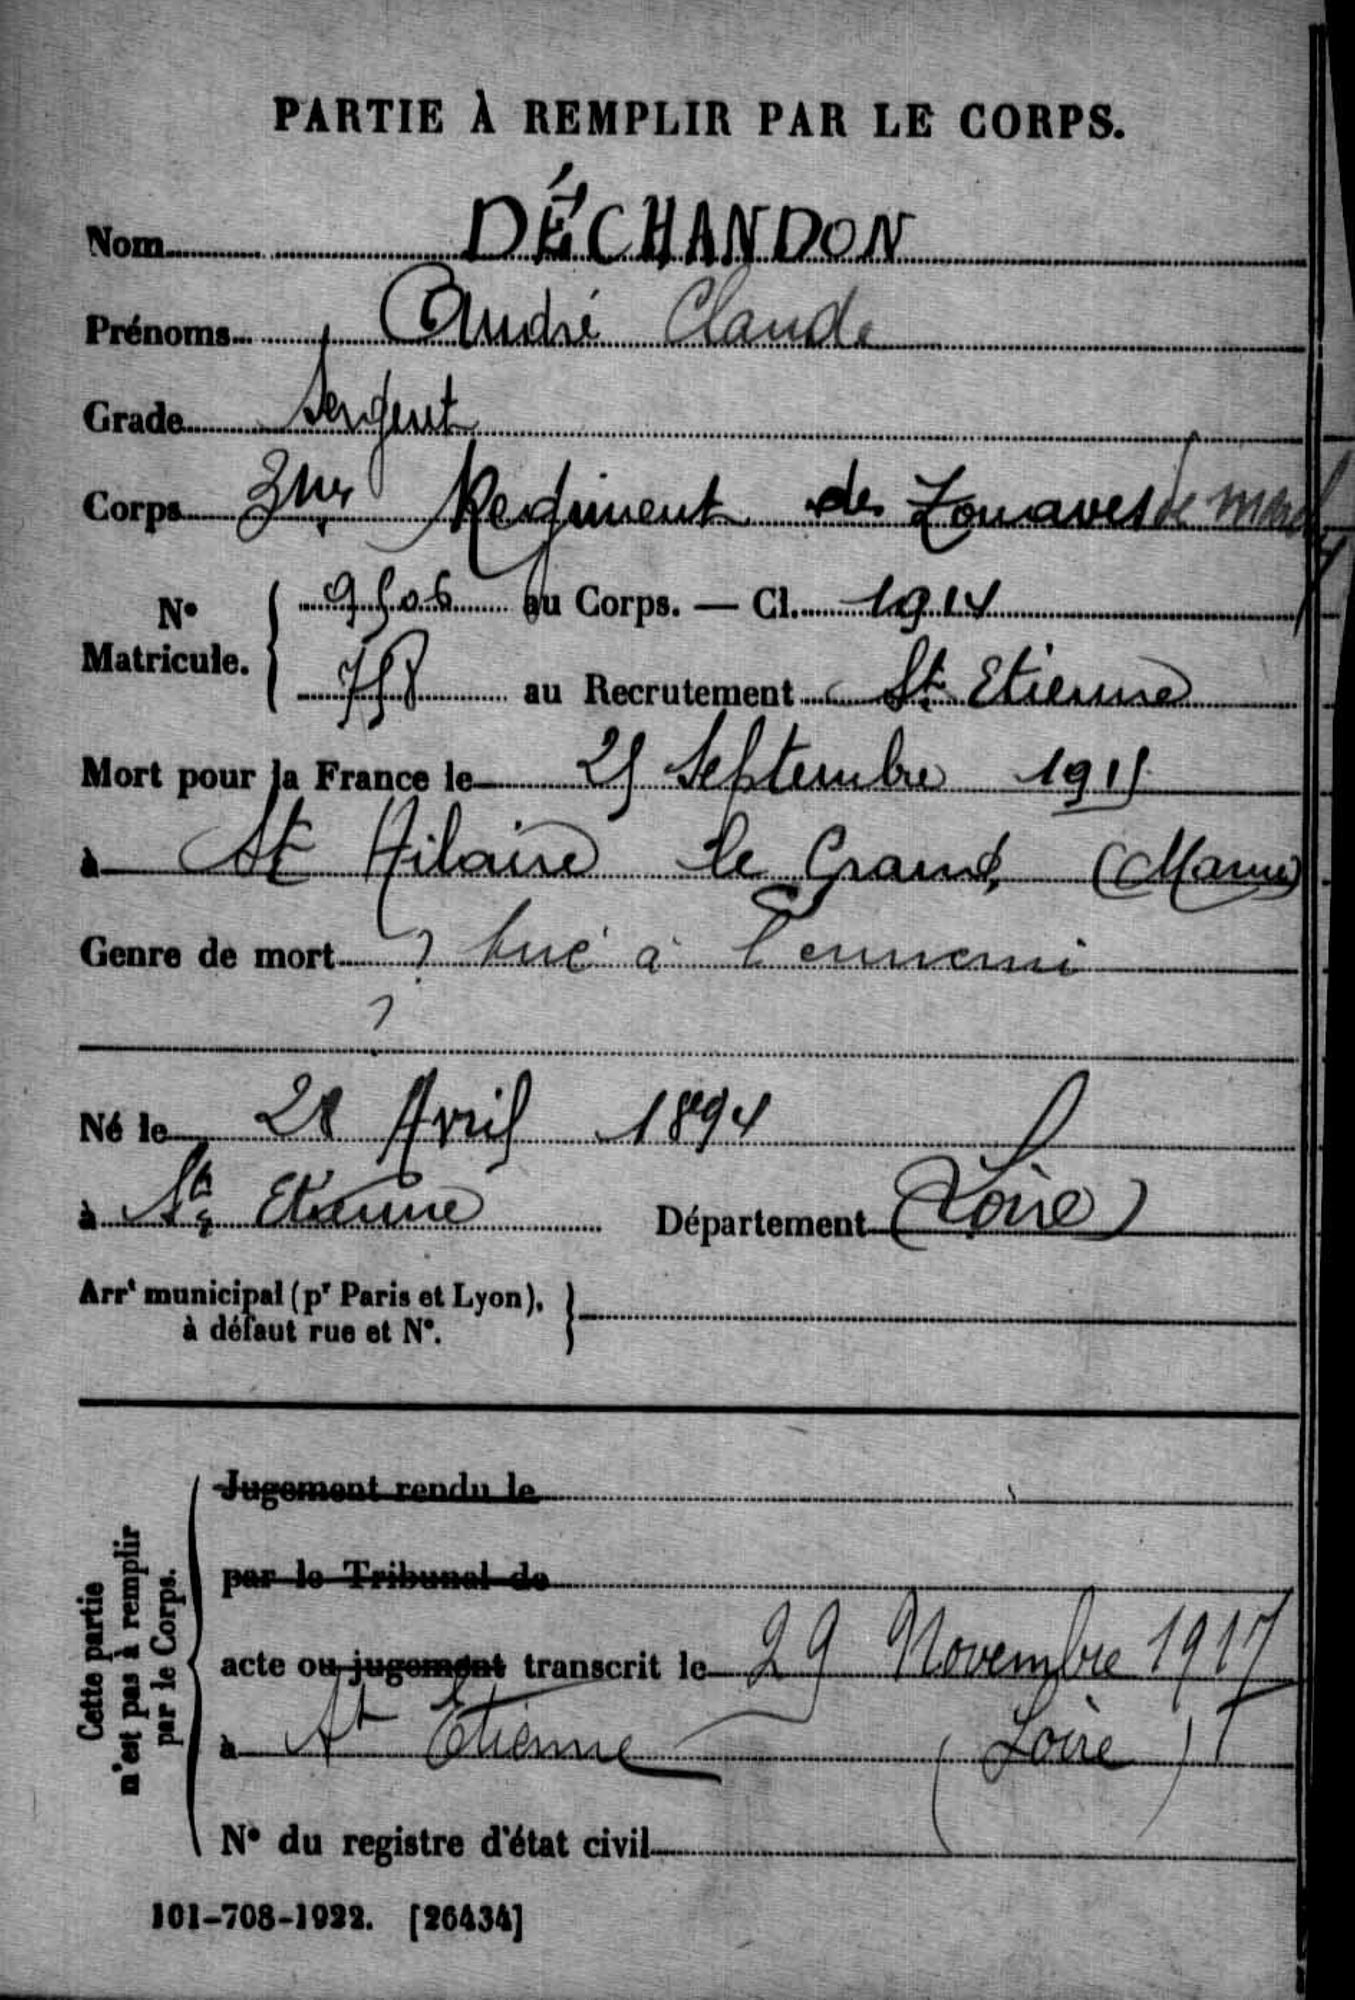 PARTIE À REMPLIR PAR LE CORPS.
Nom DÉCHANDON
Prénoms André Claude
Grade Sergent
Corps 3me Regiment de Zouaves de
N° Matricule. { 9506 au Corps. — Cl. 1914
758 au Recrutement St Etienne
Mort pour la France le 25 Septembre 1915
à St Hilaire le Grand (Marne)
Genre de mort ? tué à l'ennemi
?
Né le 28 Avril 1894
à St Etienne Département (Loire)
Arrt municipal (pr Paris et Lyon), }
à défaut rue et N°.
Cette partie
n'est pas à remplir
par le Corps.
Jugement rendu le
par le Tribunal de
acte ou jugement transcrit le 29 Novembre 1917
à St Etienne (Loire)
N° du registre d'état civil
101-708-1922. [26434]